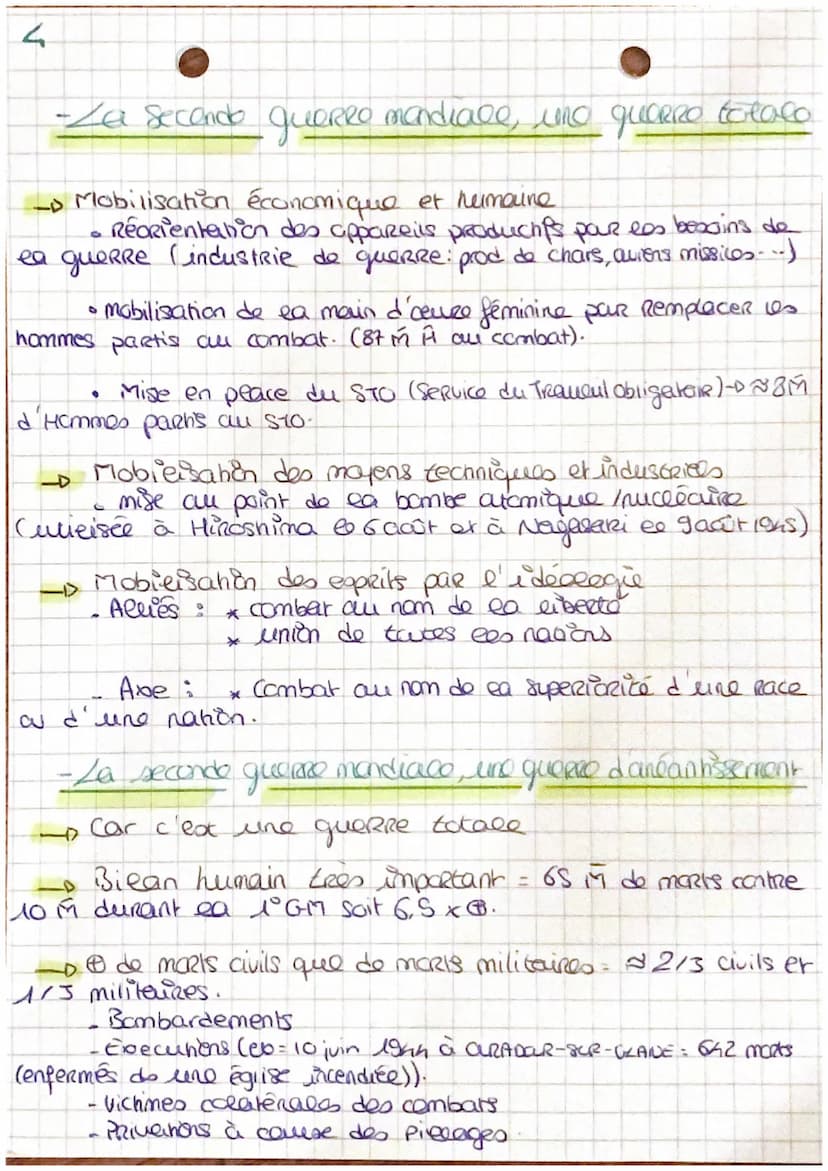 4
- La seconde guerre mondiale, une guerre totale
→ Mobilisation économique et humaine
• Réorientation des appareils productifs par les besoins de
la guerre (industrie de guerre : prod de chars, avions missiles...)
• mobilisation de la main d'oeuvre féminine par remplacer les
hommes partis au combat. (87 M̄ Ĥ au combat).
• Mise en place du STO (Service du Travail Obligatoire) → ≈ 3M̄
d'Hommes partis au STO.
→ Mobilisation des moyens techniques et industriels
• mise au point de la bombe atomique / nucléaire
(utilisée à Hiroshima le 6 août et à Nagasaki le 9 août 1945)
→ Mobilisation des esprits par l'idéologie
- Alliés : * combat au nom de la liberté
* union de toutes les nations
- Axe : * Combat au nom de la supériorité d'une race
ou d'une nation.
- La seconde guerre mondiale, une guerre d'anéantissement
→ Car c'est une guerre totale
→ Bilan humain très important = 65 M̄ de morts contre
10 M̄ durant la 1° GM soit 6,5 x ⊕.
→ ⊕ de morts civils que de morts militaires = ≈ 2/3 civils et
1/3 militaires.
- Bombardements
- Éxecutions (ex = 10 juin 1944 à ORADOUR-SUR-GLANE : 642 morts
(enfermés ds une église incendiée)).
- Victimes colatérales des combats
- Privations à cause des pillages.